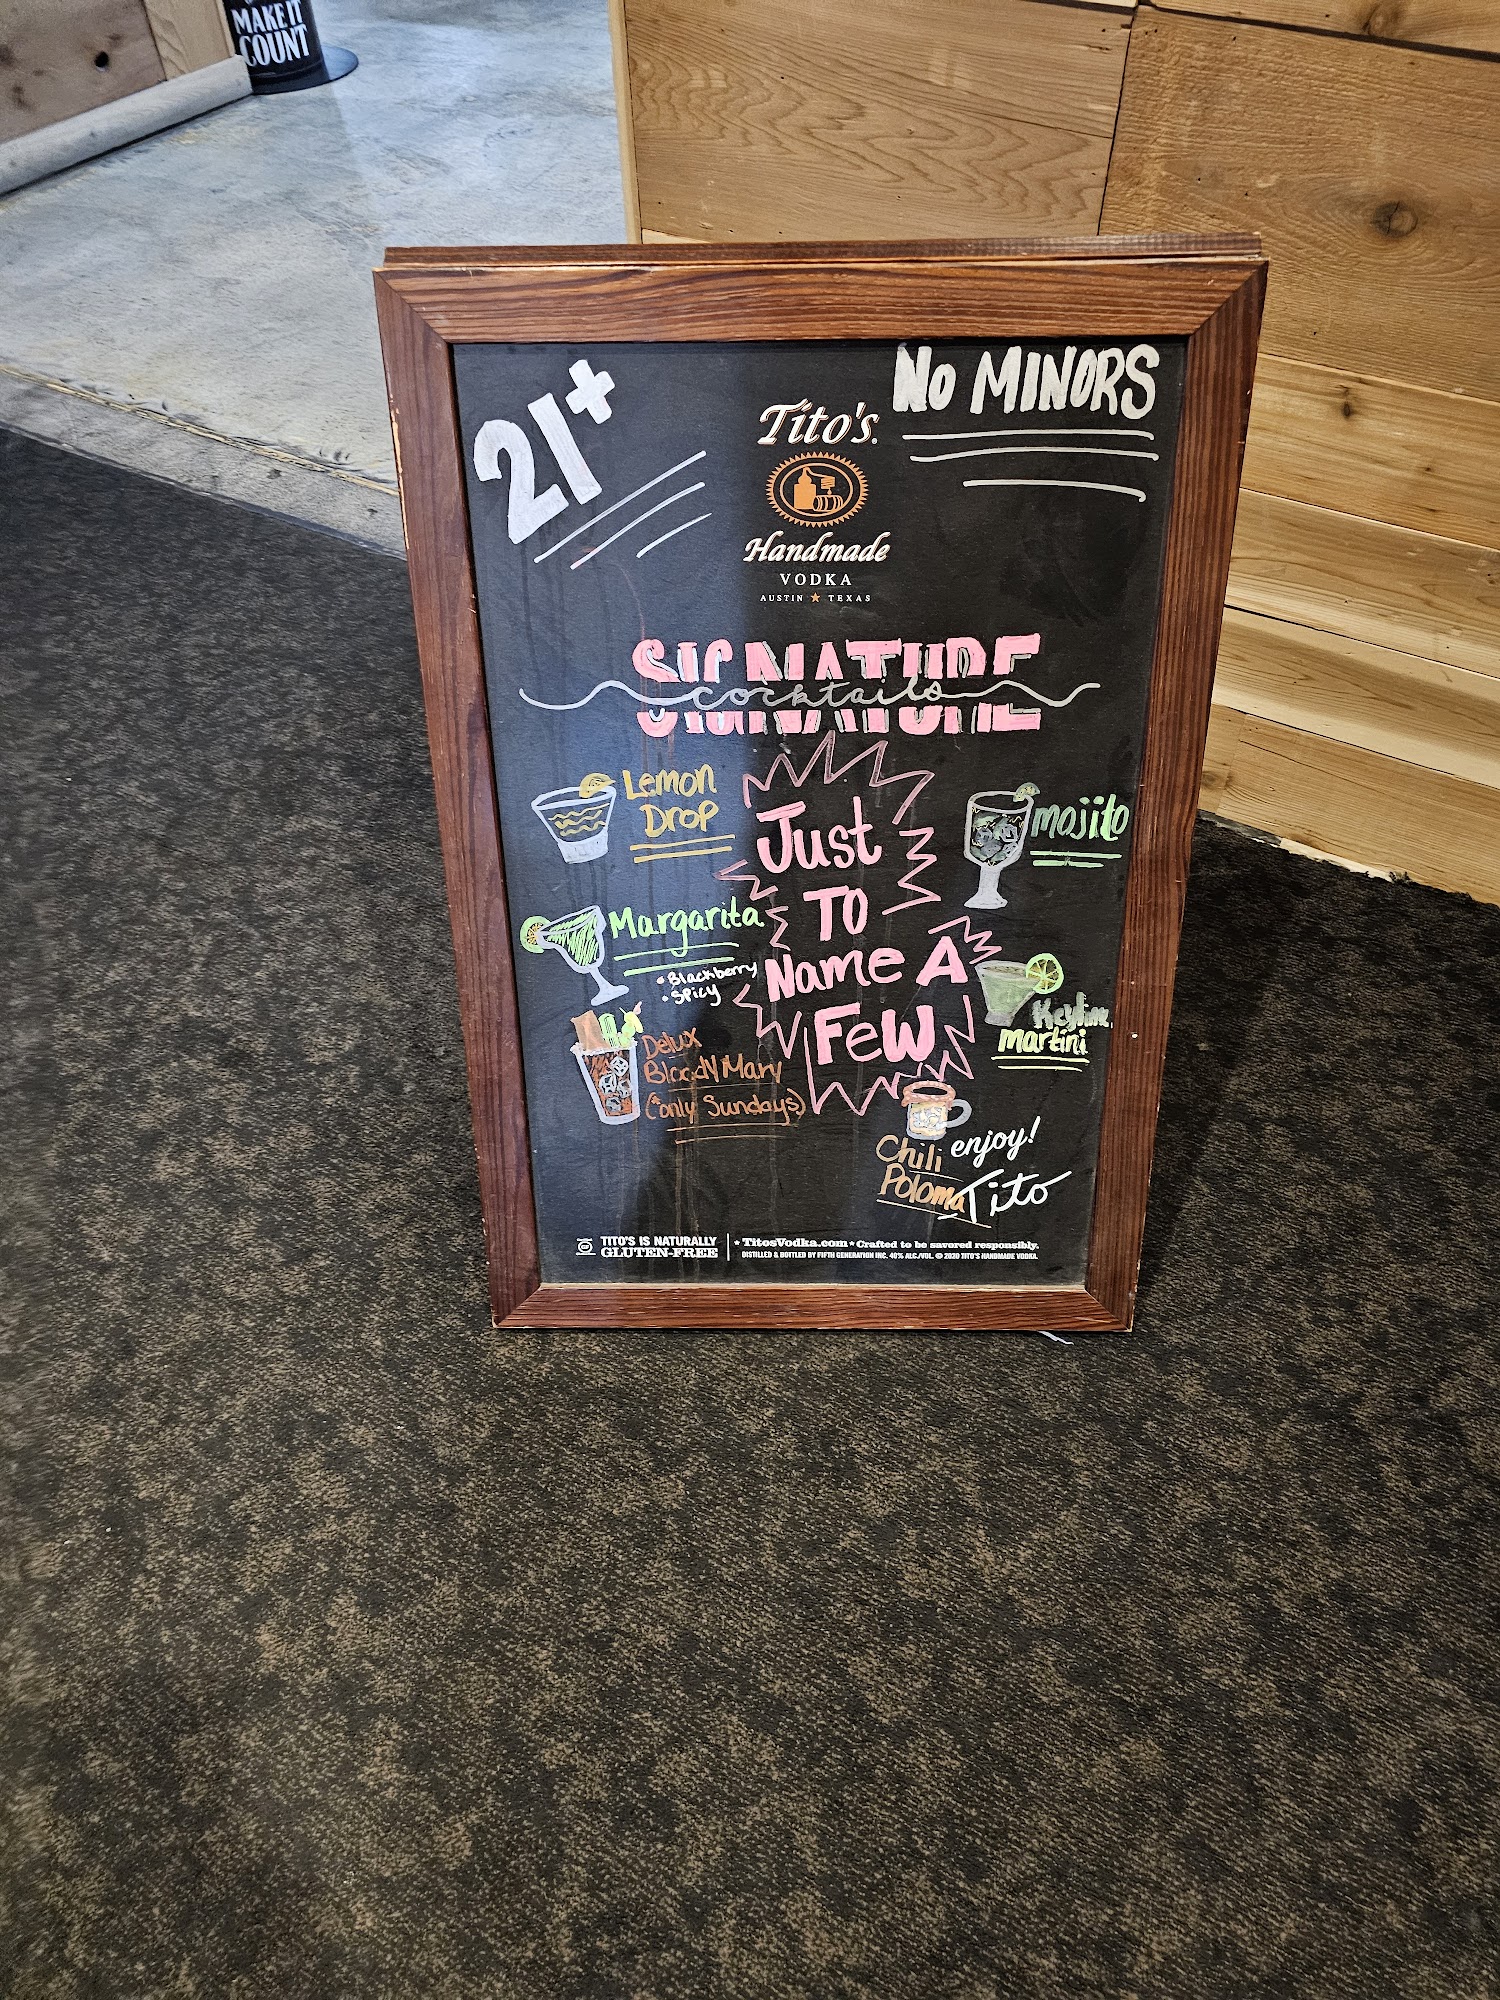 MAKE IT
COUNT
21+
NO MINORS
Tito's
Handmade
VODKA
AUSTIN ★ TEXAS
SIGNATURE
cocktails
Lemon
Drop
Margarita
• Blackberry
• Spicy
Delux
Bloody Mary
(*only Sundays)
Just
TO
Name A
FeW
mojito
Keylime
martini
Chili
Poloma
enjoy!
Tito
TITO'S IS NATURALLY
GLUTEN-FREE
★ TitosVodka.com ★ Crafted to be savored responsibly.
DISTILLED & BOTTLED BY FIFTH GENERATION INC. 40% ALC./VOL. © 2020 TITO'S HANDMADE VODKA.